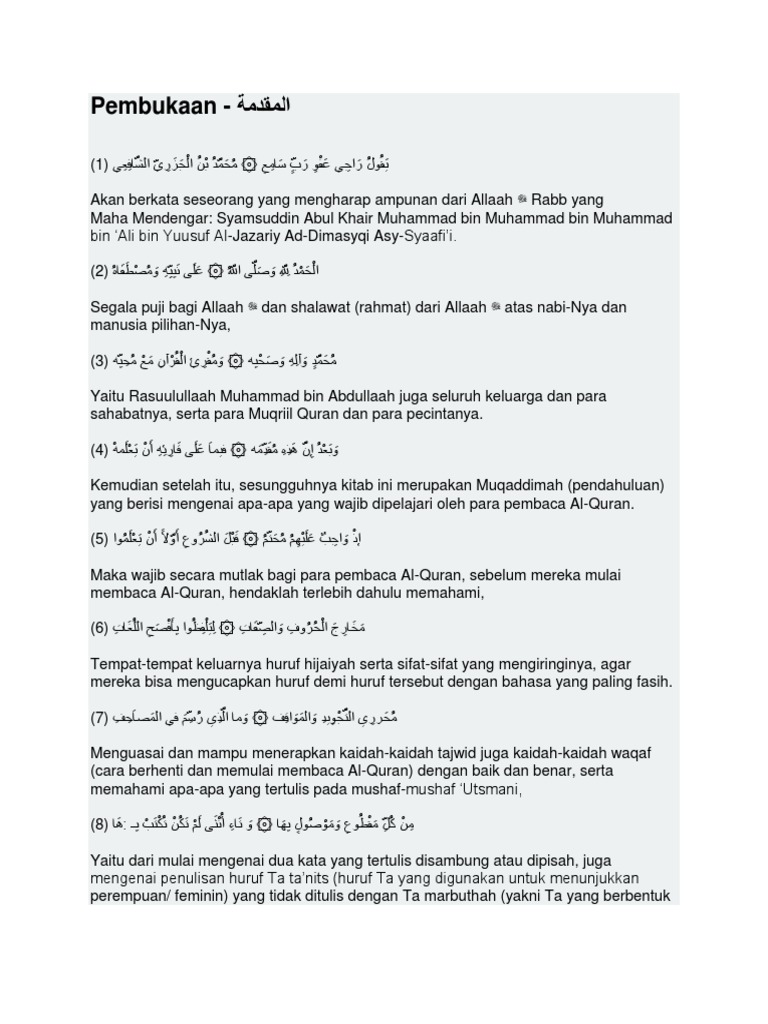 Pembukaan - المقدمة
(1) يَقُولُ رَاجِي عَفْوِ رَبٍّ سَامِعِ ۞ مُحَمَّدُ بْنُ الْجَزَرِيِّ الشَّافِعِي
Akan berkata seseorang yang mengharap ampunan dari Allaah ﷻ Rabb yang
Maha Mendengar: Syamsuddin Abul Khair Muhammad bin Muhammad bin Muhammad
bin ‘Ali bin Yuusuf Al-Jazariy Ad-Dimasyqi Asy-Syaafi’i.
(2) الْحَمْدُ لِلَّهِ وَصَلَّى اللَّهُ ۞ عَلَى نَبِيِّهِ وَمُصْطَفَاهُ
Segala puji bagi Allaah ﷻ dan shalawat (rahmat) dari Allaah ﷻ atas nabi-Nya dan
manusia pilihan-Nya,
(3) مُحَمَّدٍ وَآلِهِ وَصَحْبِهِ ۞ وَمُقْرِئِ الْقُرْآنِ مَعْ مُحِبِّهِ
Yaitu Rasuulullaah Muhammad bin Abdullaah juga seluruh keluarga dan para
sahabatnya, serta para Muqriil Quran dan para pecintanya.
(4) وَبَعْدُ إِنَّ هَذِهِ مُقَدِّمَه ۞ فِيماَ عَلَى قَارِئِهِ أَنْ يَعْلَمَهْ
Kemudian setelah itu, sesungguhnya kitab ini merupakan Muqaddimah (pendahuluan)
yang berisi mengenai apa-apa yang wajib dipelajari oleh para pembaca Al-Quran.
(5) إِذْ وَاجِبٌ عَلَيْهِمُ مُحَتَّمُ ۞ قَبْلَ الشُّرُوعِ أَوَّلاً أَنْ يَعْلَمُوا
Maka wajib secara mutlak bagi para pembaca Al-Quran, sebelum mereka mulai
membaca Al-Quran, hendaklah terlebih dahulu memahami,
(6) مَخَارِجَ الْحُرُوفِ وَالصِّفَاتِ ۞ لِيَلْفِظُوا بِأَفْصَحِ اللُّغَاتِ
Tempat-tempat keluarnya huruf hijaiyah serta sifat-sifat yang mengiringinya, agar
mereka bisa mengucapkan huruf demi huruf tersebut dengan bahasa yang paling fasih.
(7) مُحَرِرِي التَّجْوِيدِ وَالْمَوَاقِفِ ۞ وَما الَّذِي رُسِّمَ في الْمَصاَحِفِ
Menguasai dan mampu menerapkan kaidah-kaidah tajwid juga kaidah-kaidah waqaf
(cara berhenti dan memulai membaca Al-Quran) dengan baik dan benar, serta
memahami apa-apa yang tertulis pada mushaf-mushaf ‘Utsmani,
(8) مِنْ كُلِّ مَقْطُوعٍ وَمَوْصُولٍ بِهَا ۞ وَ تَاءِ أُنْثَى لَمْ تَكُنْ تُكْتَبْ بِـ: هَا
Yaitu dari mulai mengenai dua kata yang tertulis disambung atau dipisah, juga
mengenai penulisan huruf Ta ta’nits (huruf Ta yang digunakan untuk menunjukkan
perempuan/ feminin) yang tidak ditulis dengan Ta marbuthah (yakni Ta yang berbentuk